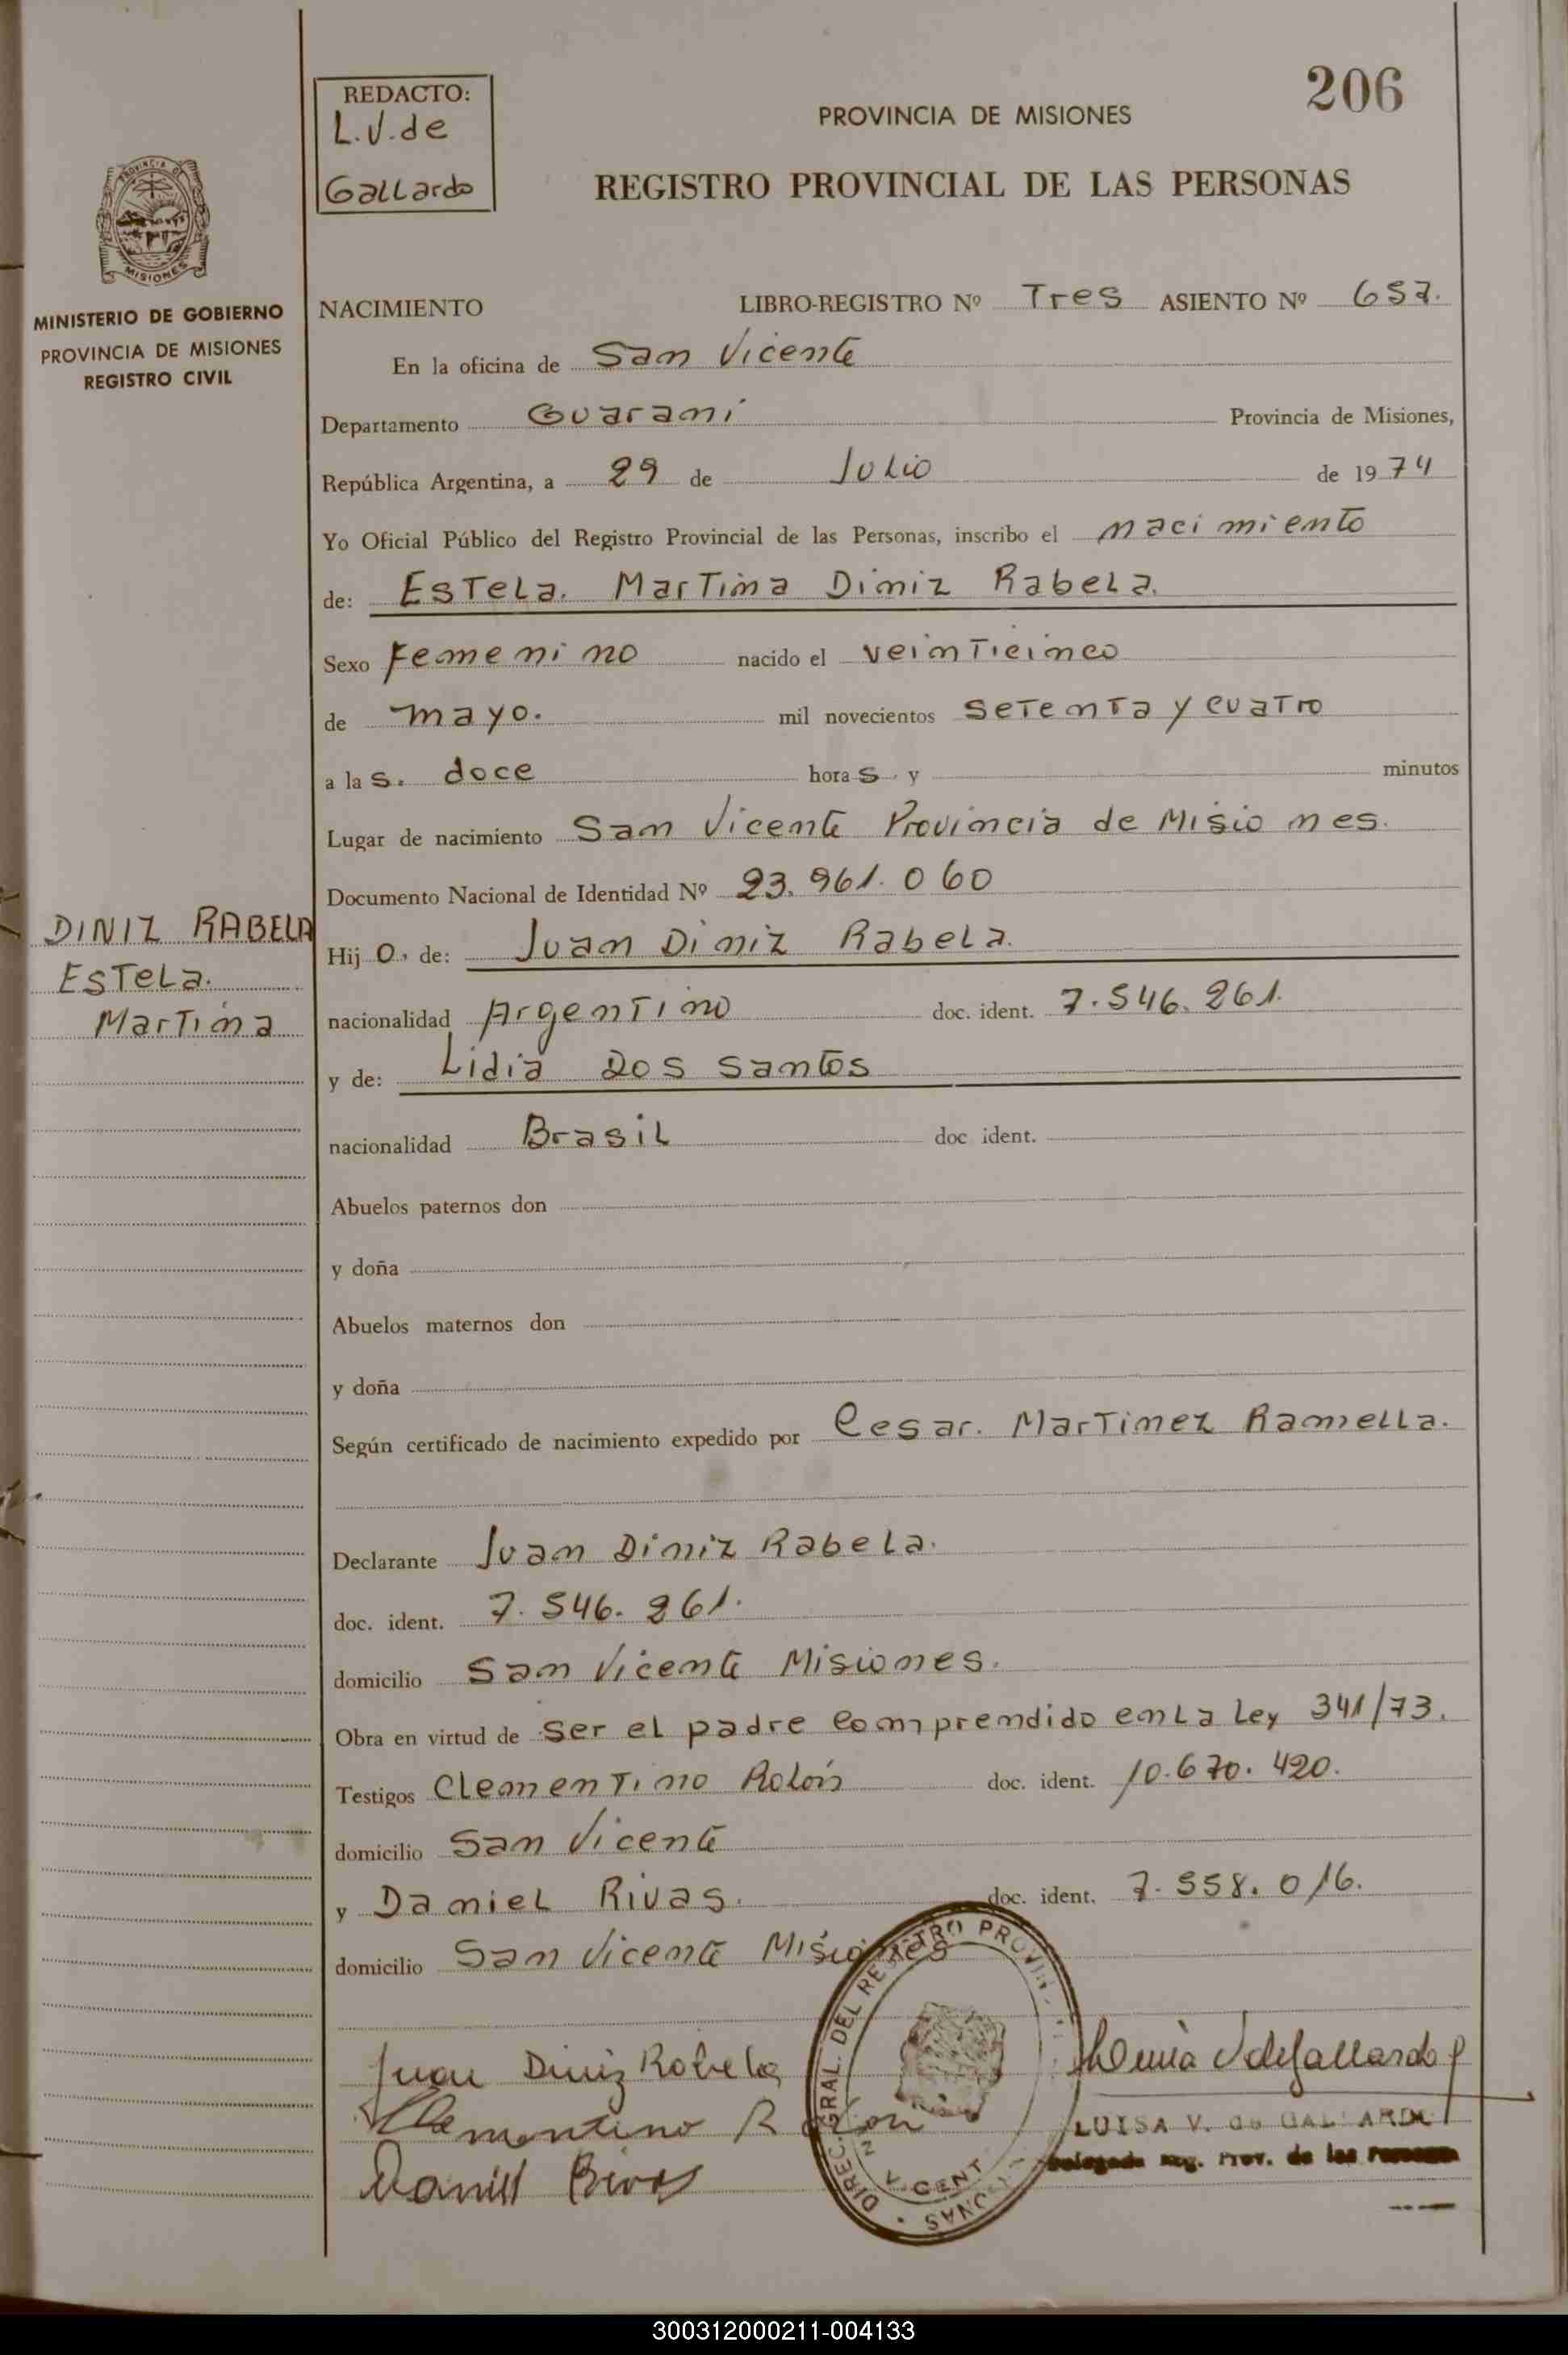 206
REDACTO:
L.V.de
Gallardo
PROVINCIA DE MISIONES
REGISTRO PROVINCIAL DE LAS PERSONAS
MISIONES
MINISTERIO DE GOBIERNO
PROVINCIA DE MISIONES
REGISTRO CIVIL
NACIMIENTO LIBRO-REGISTRO Nº Tres ASIENTO Nº 657.
En la oficina de San Vicente
Departamento Guaraní Provincia de Misiones,
República Argentina, a 29 de Julio de 1974
Yo Oficial Público del Registro Provincial de las Personas, inscribo el nacimiento
de: Estela. Martina Diniz Rabela.
Sexo Femenino nacido el veinticinco
de mayo. mil novecientos setenta y cuatro
a las. doce horas y minutos
Lugar de nacimiento San Vicente Provincia de Misiones.
Documento Nacional de Identidad Nº 23.961.060
DINIZ RABELA
Estela.
Martina
Hijo. de: Juan Diniz Rabela.
nacionalidad Argentino doc. ident. 7.546.261.
y de: Lidia Dos Santos
nacionalidad Brasil doc ident.
Abuelos paternos don
y doña
Abuelos maternos don
y doña
Según certificado de nacimiento expedido por Cesar. Martinez Ramella.
Declarante Juan Diniz Rabela.
doc. ident. 7.546.261.
domicilio San Vicente Misiones.
Obra en virtud de ser el padre comprendido en la Ley 341/73.
Testigos Clementino Rolón doc. ident. 10.670.420.
domicilio San Vicente
y Daniel Rivas. doc. ident. 7.558.016.
domicilio San Vicente Misiones
Juan Diniz Rabela
Clementino Rolon
Daniel Rivas
DIREC. GRAL. DEL REGISTRO PROVIN
LUISA V. de GALLARDO
Delegada Reg. Prov. de las Personas
300312000211-004133